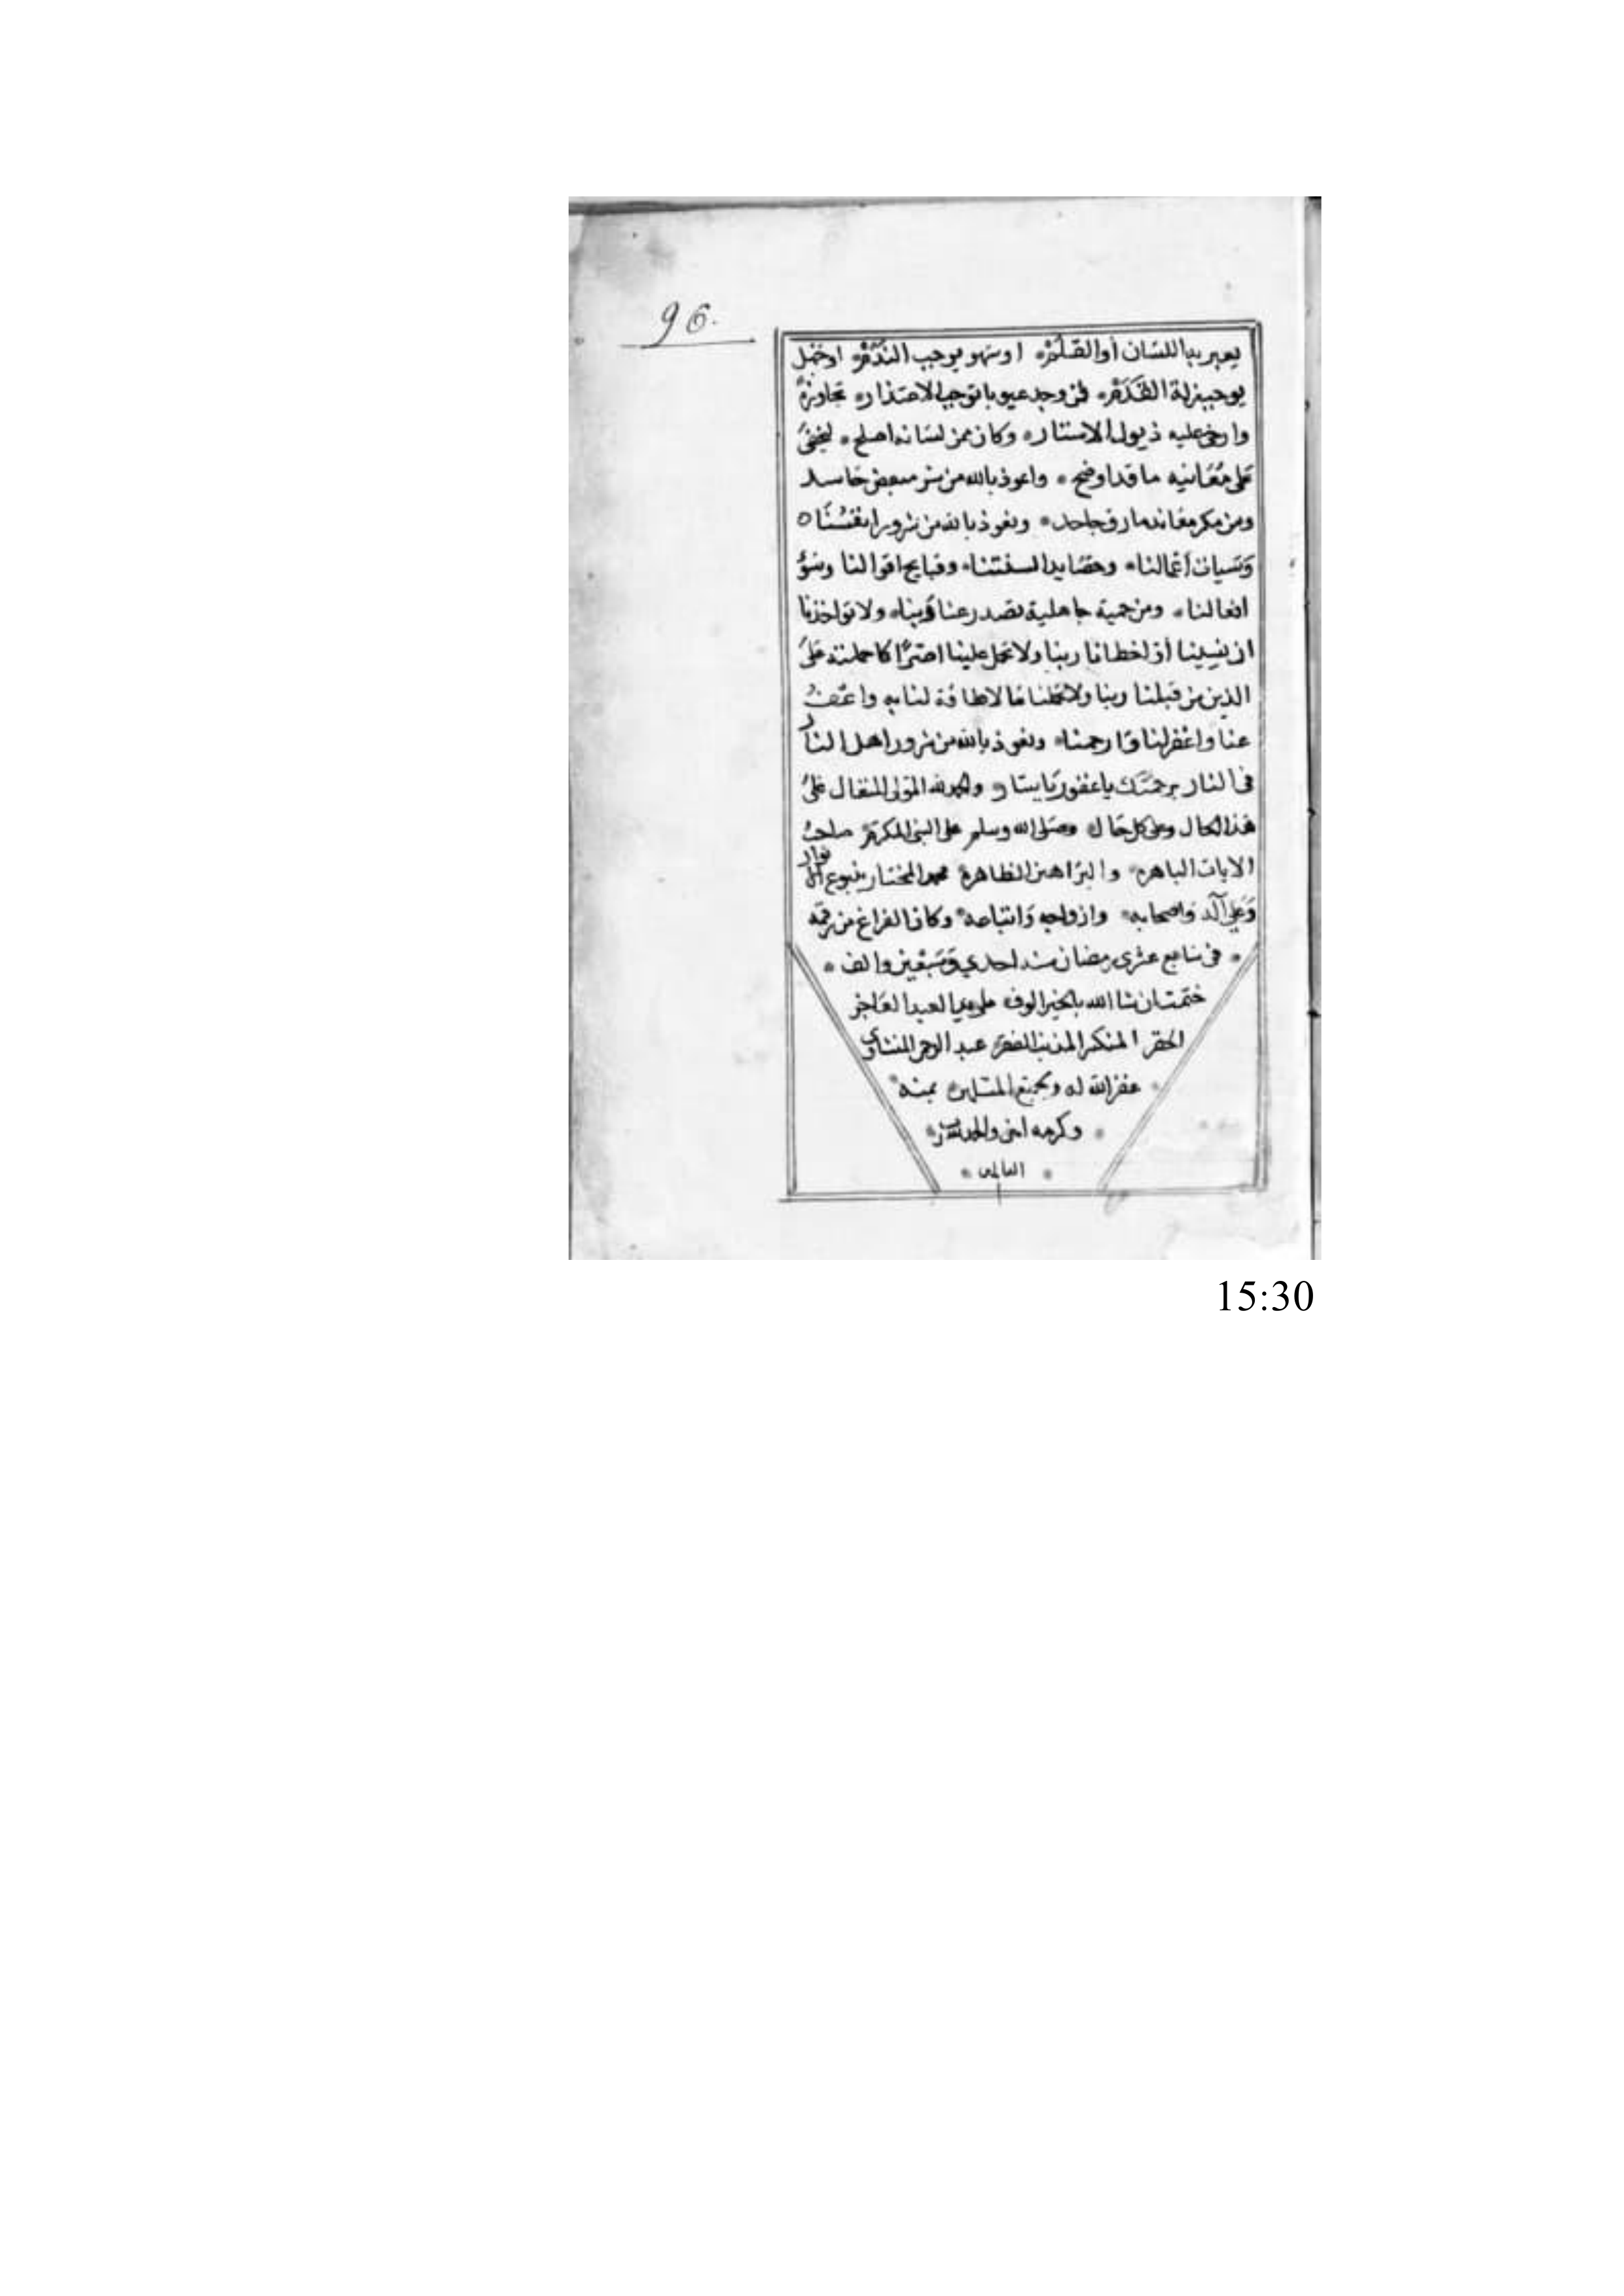 96.
يعبر بها اللسان أو القلم او سهو يوجب الندم او خطل
يوجب زلة القدم فمن وجد عيوبا توجب الاعتذار تجاوزه
وارخى عليه ذيول الاستار وكان ممن لسانه اصلح ليخفى
على معانيه ما قد اوضح واعوذ بالله من شر مبغض حاسد
ومن مكر معاند مارق جاحد ونعوذ بالله من شرور انفسنا
وسيات أعمالنا وحصايد السنتنا وقبايح اقوالنا وسؤ
افعالنا ومن حمية جاهلية تصدر عنا ربنا ولا تواخذنا
ان نسينا أو اخطانا ربنا ولا تحمل علينا اصرًا كما حملته على
الذين من قبلنا ربنا ولا تحملنا ما لا طاقة لنا به واعف
عنا واغفر لنا وارحمنا ونعوذ بالله من شرور اهل النار
فى النار برحمتك يا غفور يا ستار والحمد لله المتعال على
هذا الحال وعلى كل حال وصلى الله وسلم على النبى المكرم صاحب
الايات الباهره والبراهين الظاهرة محمد المختار ينبوع الانوار
وعلى آله واصحابه وازواجه واتباعه وكان الفراغ من رقمه
فى سابع عشرى رمضان سنه احدي وسبعين والف
ختمت ان شا الله بالخير الوف على يد العبد العاجز
الحقير المنكسر المذنب الفقير عبد الرحمن المنشاوى
غفر الله له ولجميع المسلمين بمنه
وكرمه امين والحمد لله رب
العالمين
15:30